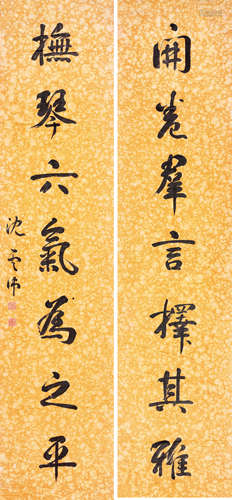 開卷羣言擇其雅
撫琴六氣為之平
沈雲沛